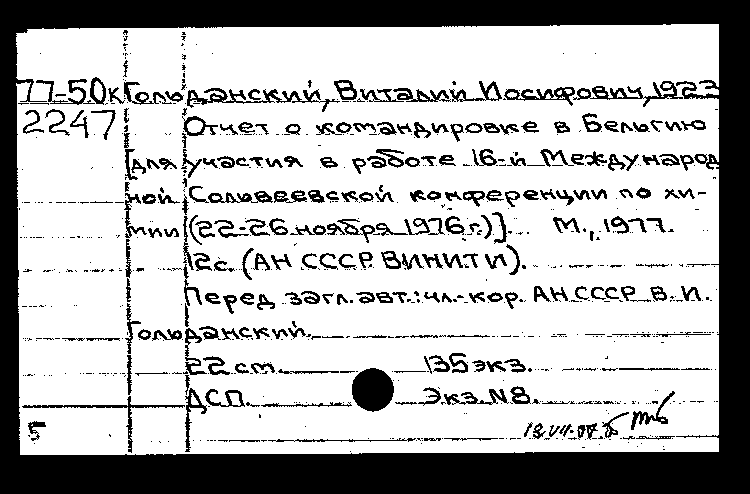 77-50к Гольданский, Виталий Иосифович, 1923
2247 Отчет о командировке в Бельгию
[для участия в работе 16-й Международ
ной Сольвеевской конференции по хи-
мии (22-26 ноября 1976 г.)]. М., 1977.
12с. (АН СССР. ВИНИТИ).
Перед загл. авт.: чл.-кор. АН СССР В.И.
Гольданский.
22 см. 135 экз.
ДСП. Экз. N8.
5